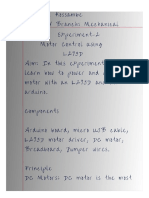 Branch: Mechanical
Experiment-2
Motor Control using
L293D
Aim: In this experiment
learn how to power and
motor with an L293D and
Arduino.
Components
Arduino board, micro USB cable,
L293D motor driver, DC motor,
Breadboard, Jumper wires.
Principle
DC Motors: DC motor is the most